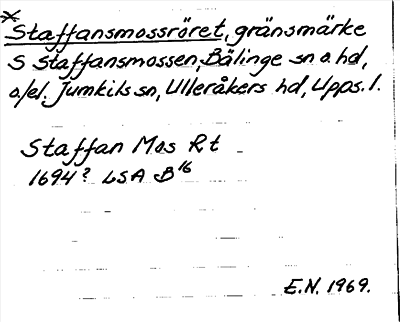 *Staffansmossröret, gränsmärke
S Staffansmossen, Bälinge sn o. hd,
o/el. Jumkils sn, Ulleråkers hd, Upps. l.
Staffan Mos Rt
1694? LSA B¹⁶
E.N. 1969.